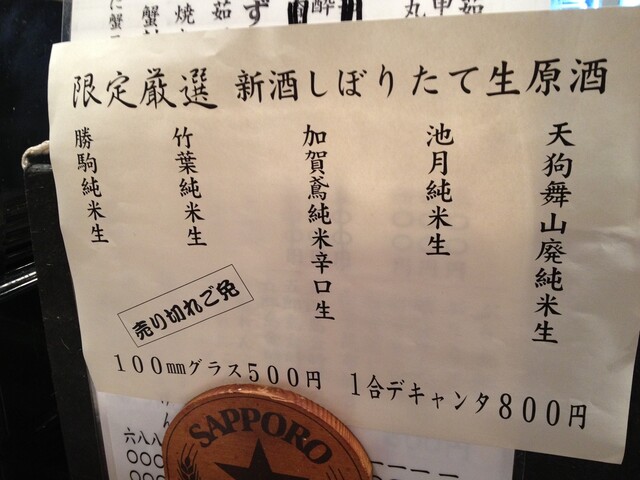 限定厳選 新酒しぼりたて生原酒
天狗舞山廃純米生
池月純米生
加賀鳶純米辛口生
竹葉純米生
勝駒純米生
売り切れご免
100㎜グラス500円 1合デキャンタ800円
SAPPORO